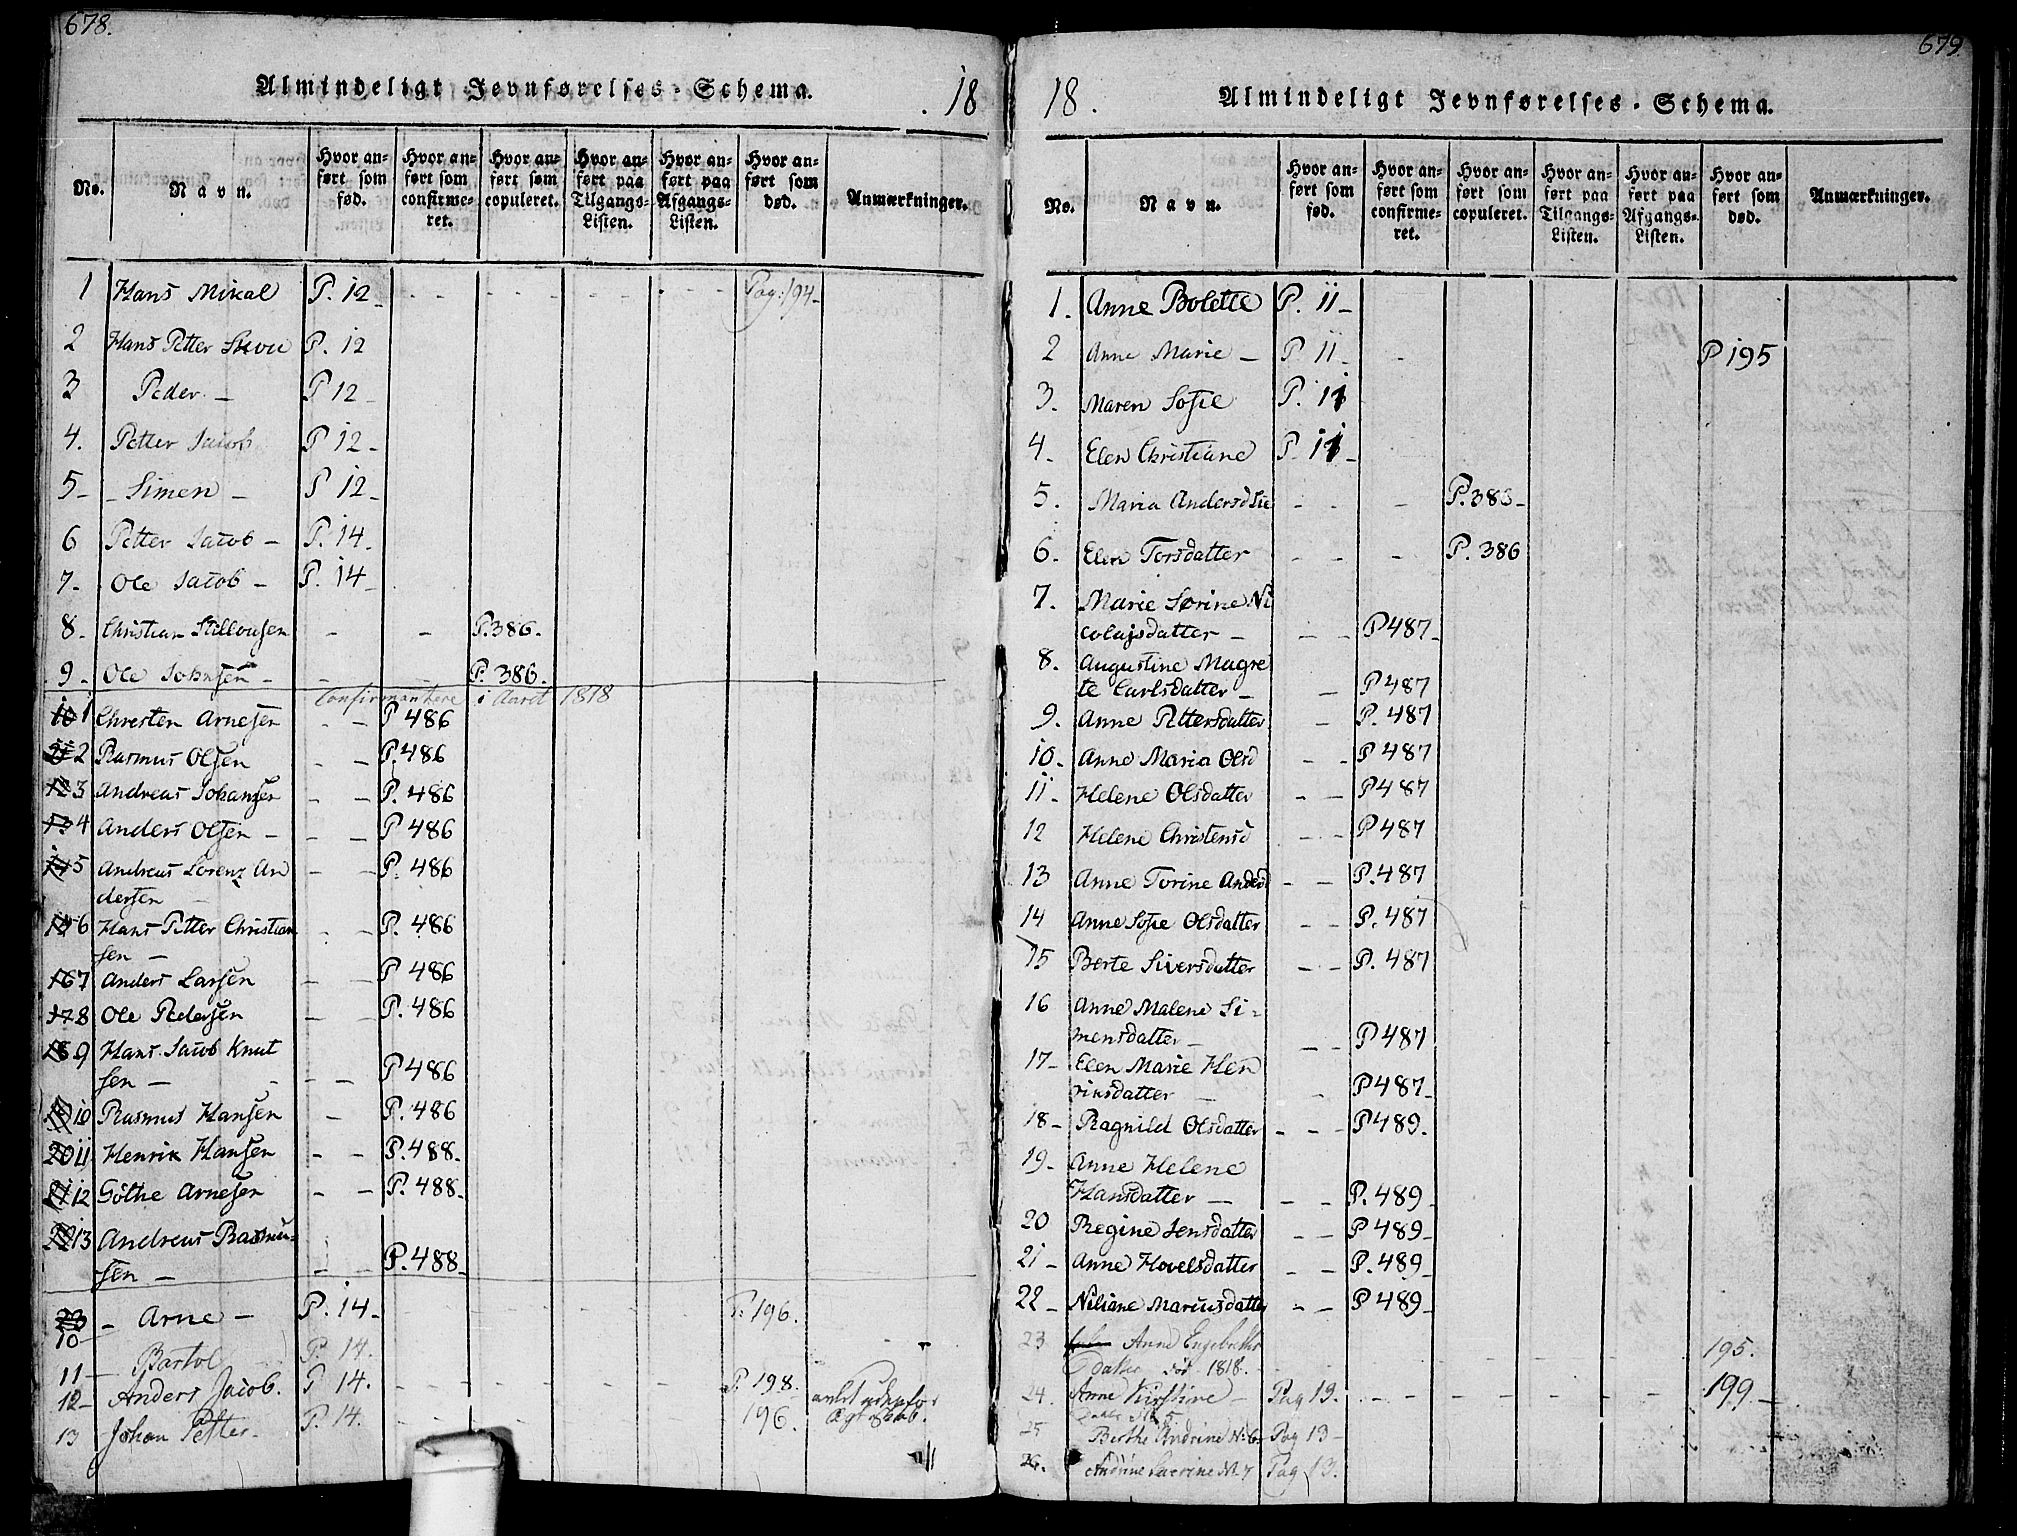 678.
Almindeligt Jevnførelses-Schema.
18
No.
Navn.
Hvor anført som fød.
Hvor anført som confirmeret.
Hvor anført som copuleret.
Hvor anført paa Tilgangs-Listen.
Hvor anført paa Afgangs-Listen.
Hvor anført som død.
Anmærkninger.
1 Hans Mikal P. 12 - - - - - - - - Pag: 194-
2 Hans Petter P. 12
3 Peder - P 12 -
4. Petter Jacob P 12 -
5 - - Simen - P 12 -
6 Petter Jacob - P. 14 -
7 - Ole Jacob - P. 14 -
8 - Christian Stillousen - - P. 386 -
9 - Ole Johnsen - - - P. 386 -
Confirmantere i Aaret 1818
10 1 Christen Arnesen - - P 486
11 2 Rasmus Olsen - - P. 486
12 3 Andreas Johansen - - P. 486
13 4 Anders Olsen - - - P 486
14 5 Andreas Lorenz An - - P. 486
dersen -
15 6 Hans Petter Christian - - P. 486
sen -
16 7 Anders Larsen - - P 486
17 8 Ole Pedersen - - P. 486
18 9 Hans Jacob Knut
sen - - - - P 486
19 10 Rasmus Hansen - P. 486
20 11 Henrik Hansen - - P. 488 -
21 12 Göthe Arnesen - - P. 488 -
22 13 Andreas Rasmu-
sen - - - P. 488 -
23
10 - Arne - P. 14 - - - - - - P. 196.
11 - Bartol P. 14.
12 - Anders Jacob. P 14. - - - - - P. 198.
13 Johan Petter - P. 14. - - - - 196. Ægteskab.
679.
18.
Almindeligt Jevnførelses-Schema.
No.
Navn.
Hvor anført som fød.
Hvor anført som confirmeret.
Hvor anført som copuleret.
Hvor anført paa Tilgangs-Listen.
Hvor anført paa Afgangs-Listen.
Hvor anført som død.
Anmærkninger.
1. Anne Bolette P. 11 -
2 Anne Marie - P. 11 - - P 195
3. Maren Sofie P. 11
4 - Elen Christiane P. 11 -
5. Maria Andersd - - - P. 386 -
6. Elen Torsdatter - - - P. 386
7. Marie Sørine Ni
colajsdatter - - - P 487 -
8. Augustine Magre
te Carlsdatter - - P 487
9. Anne Pettersdatter - P. 487
10 - Anne Maria Olsd - - P 487
11 - Helene Olsdatter - - P 487
12 Helene Christensd - - P 487
13 Anne Torine Andersd - - P. 487
14 Anne Sofie Olsdatter - - P. 487
15 Berte Siversdatter - - P. 487
16 Anne Malene Si-
mensdatter - - - P 487
17 - Elen Marie Hen
riksdatter - - P 487 -
18 - Ragnild Olsdatter - - - P 489 -
19 - Anne Helene
Hansdatter - - - P. 489 -
20 Regine Jensdatter - - P 489 -
21 - Anne Hovelsdatter - - P. 489 -
22 - Niliane Mariusdatter - - P 489 -
23 Anne Engebrets
datter død 1818. - - - - - - 195.
24. Anne Kirstine - Pag 13. - - - - - - - - 199 -
25 Berthe Andrine N: 6 - Pag 13 -
26. Andrine N. 7 Pag 13.